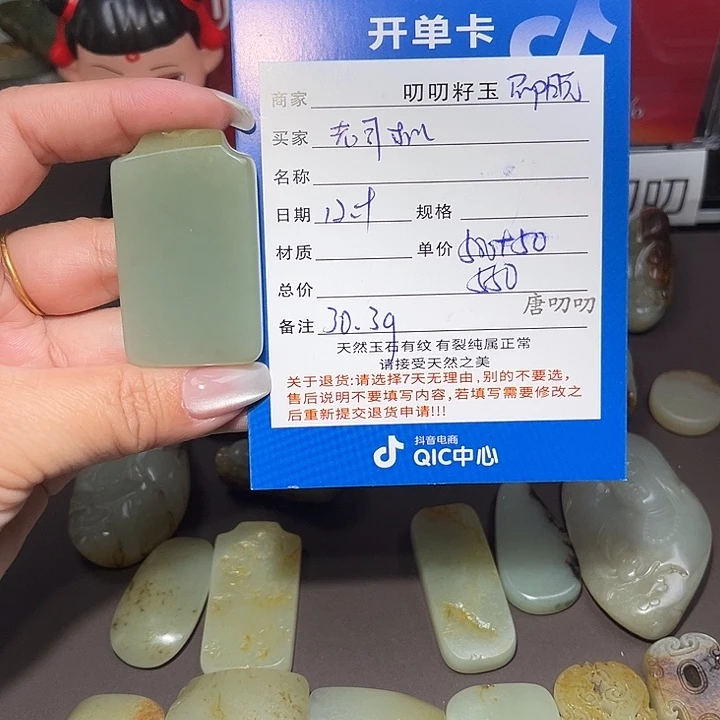 开单卡
商家 叨叨籽玉
买家 老司机
名称
日期 12.十 规格
材质 单价 500+50
总价 550
唐叨叨
备注 30.3g
天然玉石有纹 有裂纯属正常
请接受天然之美
关于退货:请选择7天无理由,别的不要选,
售后说明不要填写内容,若填写需要修改之
后重新提交退货申请!!!
抖音电商
QIC中心
叨